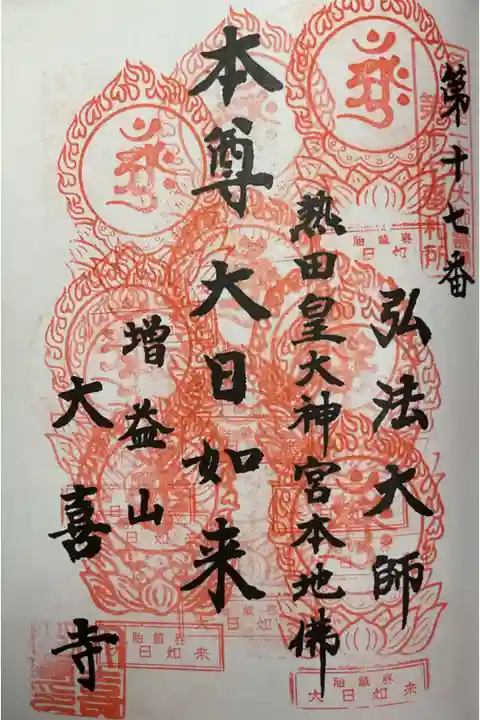 第十七番
弘法大師
熱田皇大神宮本地佛
本尊大日如来
増益山
大喜寺
胎蔵界
大日如来
胎蔵界
大日如来